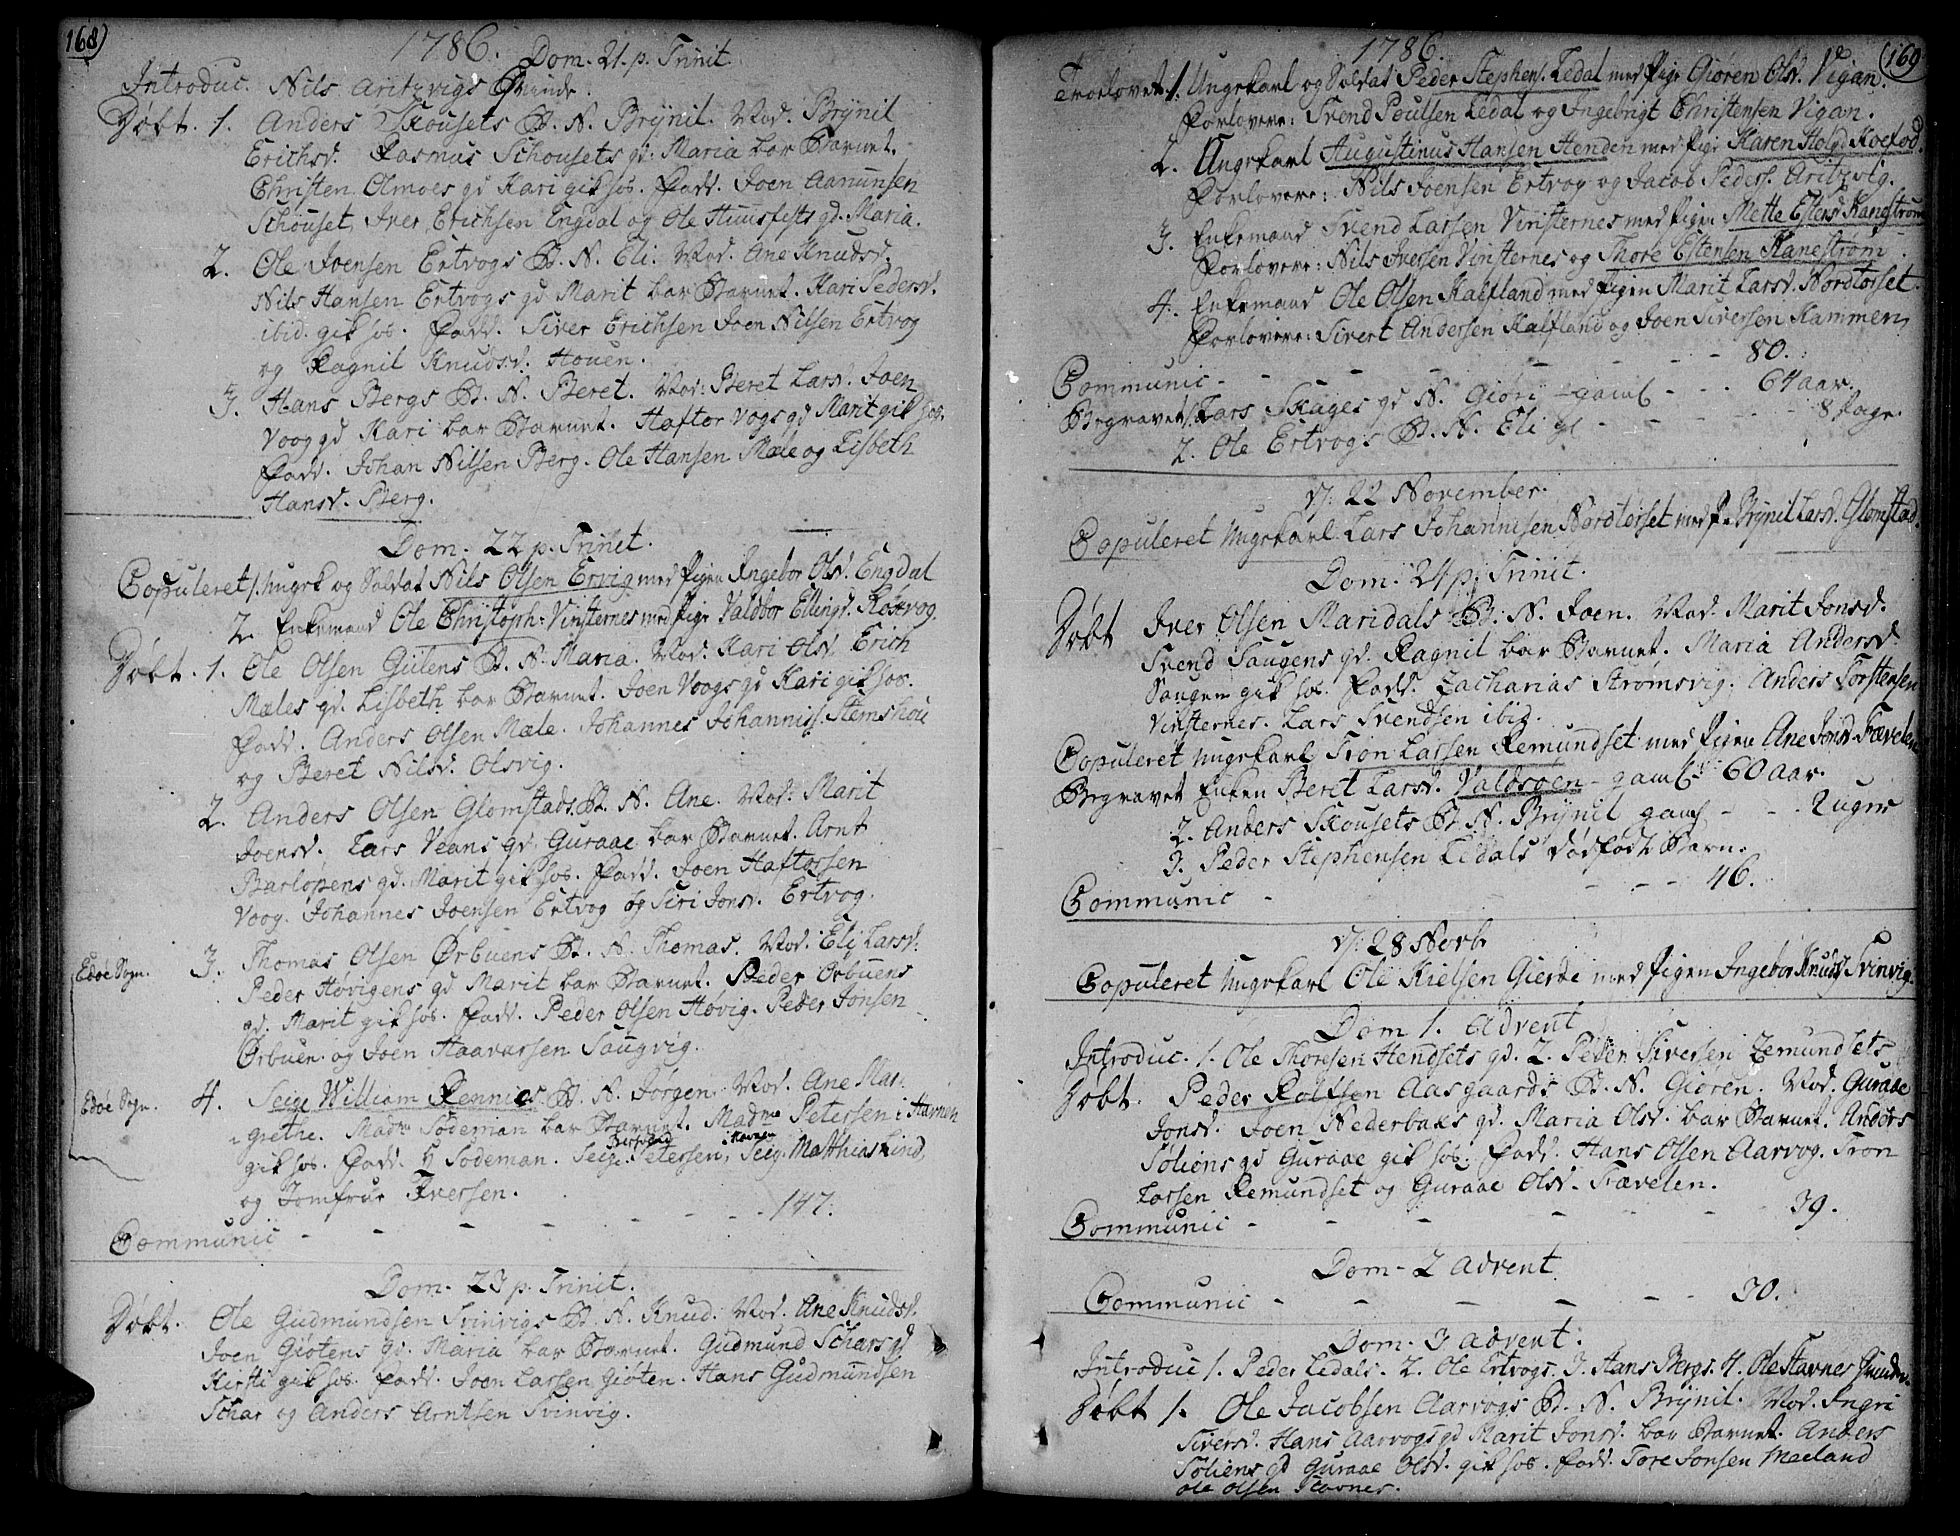 168)
1786.
Dom. 21. p. Trinit.
Introduc. Nils Aritzvigs Qvinde.
Døbt. 1. Anders Skousets B. N. Brÿnil. Mod. Brÿnil
Erichsd. Rasmus Schousets qd. Maria bar Barnet.
Christen Olmoes qd Kari gik hos. Fadd. Joen Aanunsen
Schouset, Iver Erichsen Engdal og Ole Huusfests qd. Maria.
2. Ole Joensen Ertvogs B. N. Eli. Mod. Ane Knudsd.
Nils Hansen Ertvogs qd Marit bar Barnet. Kari Pedersd.
ibid. gik hos. Fadd. Siver Erichsen Joen Nilsen Ertvog
og Ragnil Knudsd. Houen.
3. Hans Bergs B. N. Beret. Mod: Beret Larsd. Joen
Voog qd Kari bar Barnet. Haftor Vogs qd Marit gik hos.
Fadd. Johan Nilsen Berg. Ole Hansen Mæle og Lisbeth
Hansd. Berg.
Dom. 22 p. Trinit.
Copuleret 1. Ungk og Soldat Nils Olsen Ervig med Pigen Ingebor Olsd. Engdal
2. Enkemand Ole Christoph: Vinsternes med Pige Valdbor Ellingd. Korsvog.
Døbt. 1. Ole Olsen Gulens B. N. Maria. Mod: Kari Olsd. Erich
Mæles qd. Lisbeth bar Barnet. Joen Voogs qd Kari gik hos.
Fadd. Anders Olsen Mæle. Johannes Johanniss. Stemshou
og Beret Nilsd. Olsvig.
2. Anders Olsen Glomstads B. N. Ane. Mod: Marit
Joensd. Lars Veans qd. Guraae bar Barnet. Arnt
Barlopens qd. Marit gik hos. Fadd. Joen Haftorsen
Voog. Johannes Joensen Ertvog og Siri Jonsd. Ertvog.
Edøe Sogn. 3. Thomas Olsen Ørbuens B. N. Thomas. Mod. Eli Larsd.
Peder Høvigens qd Marit bar Barnet. Peder Ørbuens
qd. Marit gik hos. Fadd. Peder Olsen Høvig. Peder Jonsen
Ørbuen og Joen Haavarsen Saugvig.
Edøe Sogn. 4. Seigr William Rennies B. N. Jørgen. Mod. Ane Mar-
grethe. Madme Sodeman bar Barnet. Madme Petersen i Havnen
gik hos. Fadd. H Sodeman. Seigr. Petersen, i Havnen Seig. Matthias Lind,
og Jomfrue Iversen.
Communic - - - - - - 147.
Dom. 23 p. Trinit.
Døbt. Ole Gudmundsen Svinvigs B. N. Knud. Mod. Ane Knudsd.
Joen Giøtens qd. Maria bar Barnet. Gudmund Schars qd
Kirsti gik hos. Fadd. Joen Larsen Giøten. Hans Gudmundsen
Schar og Anders Arntsen Svinvig.
(169
1786.
Troelovet. 1. Ungekarl og Soldat Peder Stephens. Ledal med Pige Giøren Olsd. Vigan.
Forlovere: Svend Poulsen Ledal og Ingebrigt Christensen Vigan.
2. Ungekarl Augustinus Hansen Henden med Pige Karen Holgd Koefod.
Forlovere: Nils Joensen Ertvog og Jacob Peders. Aritzvig.
3. Enkemand Svend Larsen Vinsternes med Pigen Mette Estensd Kanestrøm
Forlovere: Nils Iversen Vinsternes og Thore Estensen Kanestrøm.
4. Enkemand Ole Olsen Kalfland med Pigen Marit Larsd. Nordtorset.
Forlovere: Sivert Andersen Kalfland og Joen Siversen Hammen,
Communic - - - - - - 80.
Begravet 1. Lars Skages qd N. Giøri - gaml - - . 64 aar.
2. Ole Ertvogs B. N. Eli gl - - - - - 8 Dage.
D. 22 November.
Copuleret Ungekarl Lars Johannisen Nordtorset med P. Brÿnil Larsd. Glomstad.
Dom. 24 p. Trinit.
Døbt Iver Olsen Maridals B. N. Joen. Mod. Marit Jonsd.
Svend Saugens qd. Ragnil bar Barnet. Maria Andersd.
Saugen gik hos. Fadd. Zacharias Strømsvig. Anders Torstensen
Vinsternes. Lars Svendsen ibid.
Copuleret Ungekarl Tron Larsen Remundset med Pigen Ane Jonsd Fævelen
Begravet Enken Beret Larsd. Valdsøen - gaml 60 aar.
2. Anders Skousets B. N. Brÿnil gaml - - - 2 uger
3. Peder Stephensen Ledals dødfødt Barn.
Communic - - - - 46.
D. 28 Novb.
Copuleret Ungekarl Ole Kielsen Gierde med Pigen Ingebor Knudsd Svinvig.
Dom 1. Advent
Introduc. 1. Ole Thoresen Hendsets qd. 2. Peder Siversen Remundsets
Døbt. Peder Rolfsen Aasgaards B. N. Giøren. Mod. Guraae
Jonsd. Joen Nederbaks qd. Maria Olsd. bar Barnet. Anders
Soliens qd Guraae gik hos. Fadd. Hans Olsen Aarvog. Tron
Larsen Remundset og Guraae Olsd. Fævelen.
Communic - - - - - - - 39.
Dom. 2 Advent
Communic - - - - - - 30.
Dom. 3 Advent.
Introduc 1. Peder Ledals. 2. Ole Ertvogs. 3. Hans Bergs. 4. Ole Stavnes Qvinder.
Døbt 1. Ole Jacobsen Aarvogs B. N. Brÿnil. Mod. Ingri
Siversd. Hans Aarvogs qd Marit Jonsd. bar Barnet. Anders
Soliens qd Guraae Olsd. gik hos. Fadd. Tore Jonsen Meeland
Ole Olsen Stavnes.